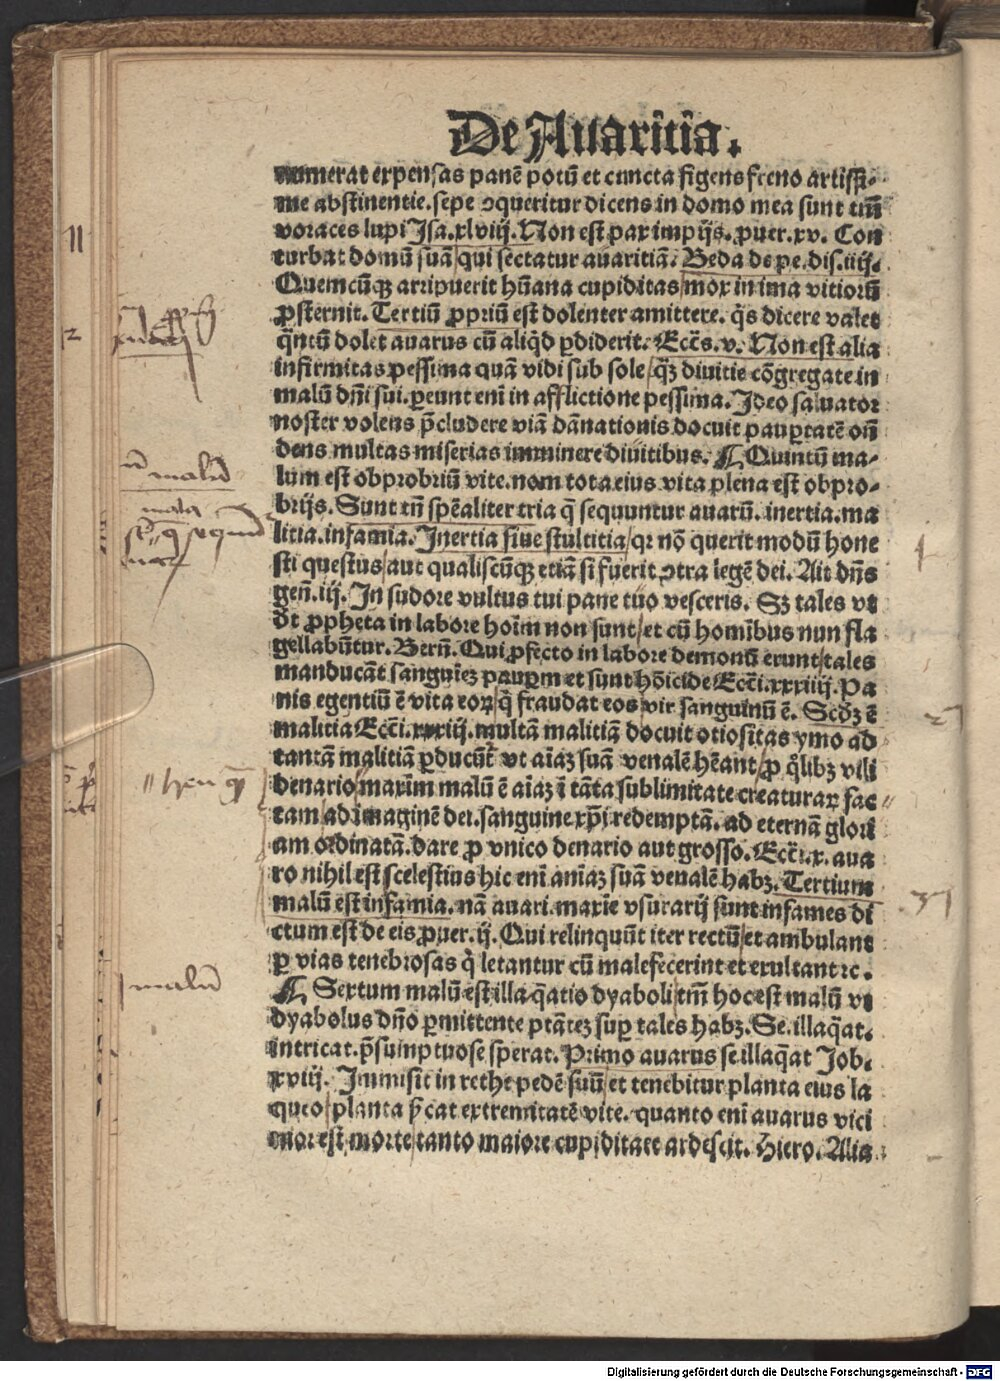 De Auaritia.
numerat expensas panē potū et cuncta figens freno artissi-
me abstinentie. sepe ꝯqueritur dicens in domo mea sunt tm̄
voraces lupi Isa. xlviij. Non est pax impijs. ꝓuer. xv. Con
turbat domū suā/qui sectatur auaritiā. Beda de pe. dis. iiij.
Quemcūqꝫ arripuerit hūana cupiditas/mox in ima vitiorū
ꝓsternit. Tertiū ꝓpriū est dolenter amittere. q̄s dicere valet
q̄ntū dolet auarus cū aliq̄d ꝑdiderit. Ecc̄s. v. Non est alia
infirmitas pessima quā vidi sub sole/q̄ꝫ diuitie cōgregate in
malū dn̄i sui. ꝑeunt enī in afflictione pessima. Ideo saluator
noster volens p̄cludere viā dānationis docuit pauꝑtatē on̄
dens multas miserias imminere diuitibus. ¶ Quintū ma-
lum est obprobriū vite. nam tota eius vita plena est obpro-
brijs. Sunt tn̄ spēaliter tria q̄ sequuntur auarū. inertia. ma
litia. infamia. Inertia siue stultitia/qꝛ nō querit modū hone
sti questus/aut qualiscūqꝫ etiā si fuerit ꝯtra legē dei. Ait dn̄s
gen̄. iij. In sudore vultus tui pane tuo vesceris. Sꝫ tales vt
dt ꝓpheta in labore hoīm non sunt/et cū homībus nun fla
gellabūtur. Bern̄. Qui ꝓfecto in labore demonū erunt/tales
manducāt sanguinē pauꝑm et sunt hōicide Ecc̄i. xxxiiij. Pa
nis egentiū ē vita eoꝝ/q̄ fraudat eos/vir sanguinū ē. Scd̄ꝫ ē
malitia Ecc̄i. xxxiij. multā malitiā docuit otiositas ymo ad
tantā malitiā ꝑducūt vt aīaꝫ suā venalē hēant/ꝓ q̄libꝫ vili
denario/maxim malū ē aīaꝫ ī tāta sublimitate creaturaꝝ fac
tam/ad imaginē dei. sanguine xp̄i redemptā. ad eternā glori
am ordinatā. dare ꝓ vnico denario aut grosso. Ecc̄i. x. aua
ro nihil est scelestius hic enī anīaꝫ suā venalē habꝫ. Tertium
malū est infamia. nā auari. maxīe vsurarij sunt infames di
ctum est de eis ꝓuer. ij. Qui relinquūt iter rectū/et ambulant
ꝑ vias tenebrosas q̄ letantur cū malefecerint et exultant ꝛc.
¶ Sextum malū est illaq̄atio dyaboli/tm̄ hoc est malū vt
dyabolus dn̄o ꝑmittente ptātez suꝑ tales habꝫ. Se. illaq̄at.
intricat. p̄sumptuose sperat. Primo auarus se illaq̄at Job.
xviij. Immisit in rethe pedē suū/et tenebitur planta eius la
queo/planta p̄cat extremitatē vite. quanto enī auarus vici
nior est morte/tanto maiore cupiditate ardescit. Hiero. Alia
malū
mala
malū
Digitalisierung gefördert durch die Deutsche Forschungsgemeinschaft - DFG